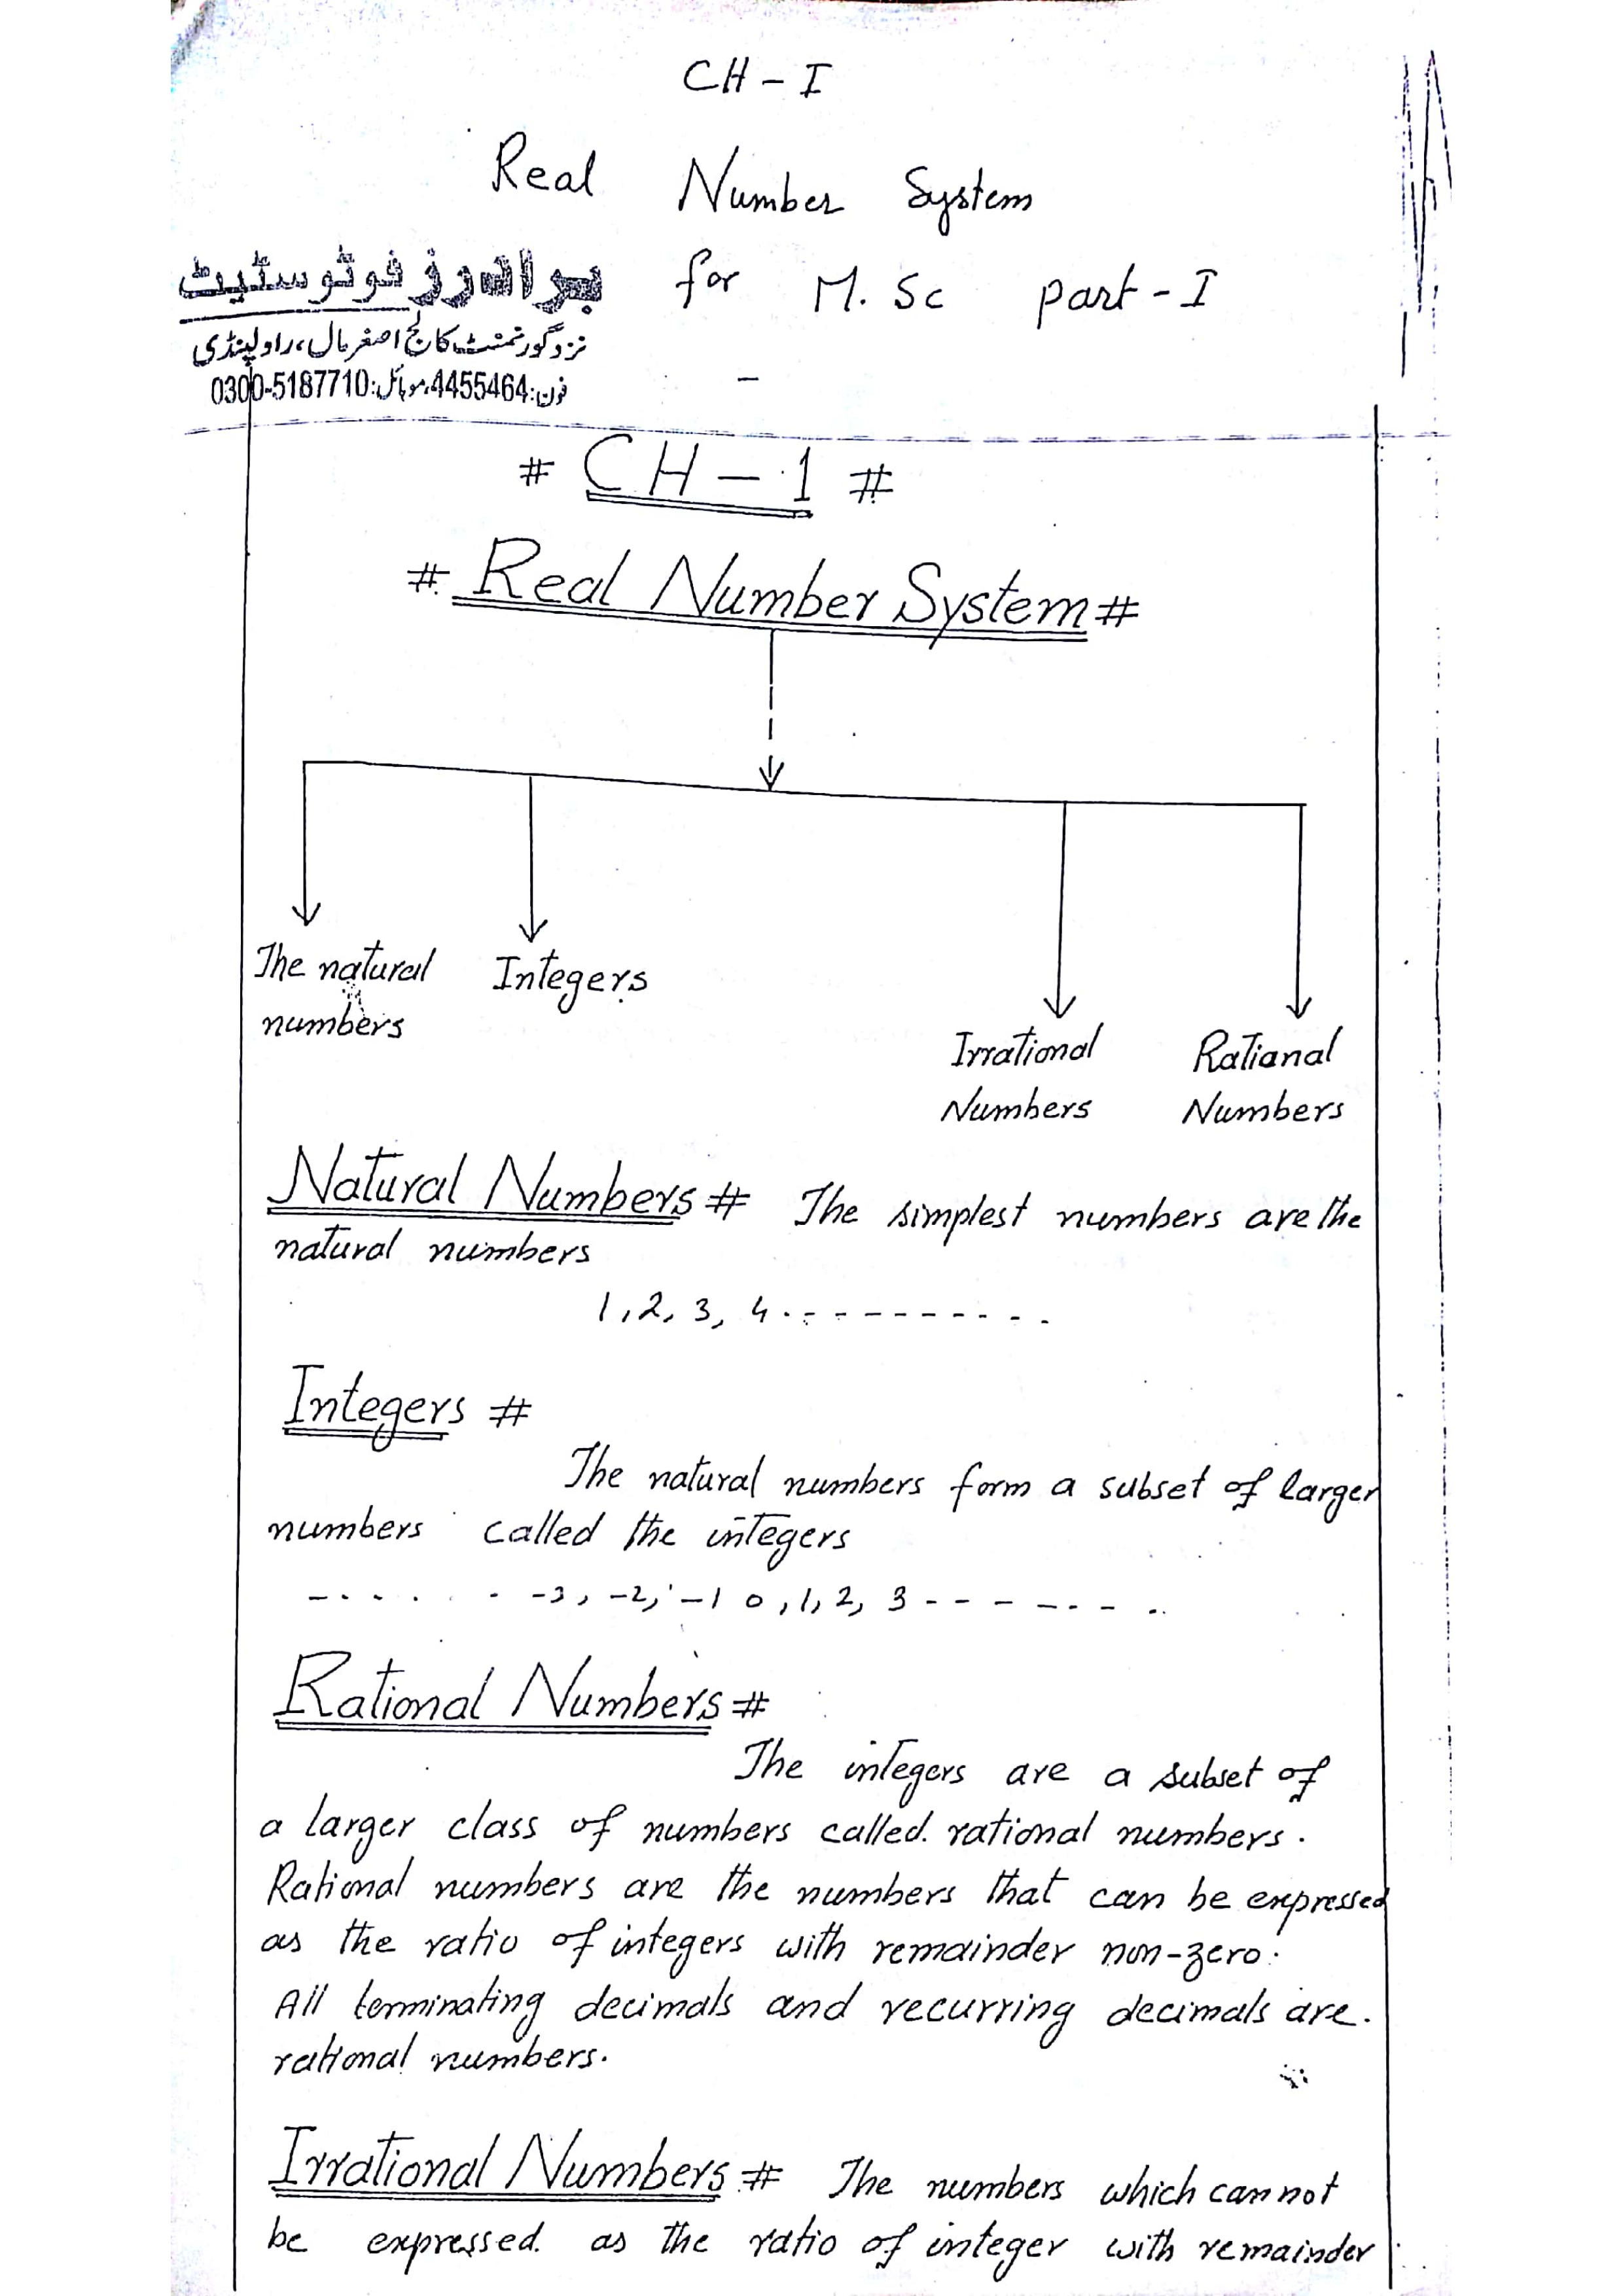 CH - I
Real Number System
for M. Sc part - I
برادرز فوٹوسٹیٹ
نزد گورنمنٹ کالج اصغر مال، راولپنڈی
فون: 4455464، موبائل: 0300-5187710
# CH - 1 #
# Real Number System #
The natural numbers
Integers
Irrational Numbers
Ratianal Numbers
Natural Numbers # The simplest numbers are the
natural numbers
1, 2, 3, 4 . - - - - - - - - - . .
Integers #
The natural numbers form a subset of larger
numbers called the integers
- - . . . . . -3, -2, -1 0, 1, 2, 3 - - - - - . - ..
Rational Numbers #
The integers are a subset of
a larger class of numbers called. rational numbers.
Rational numbers are the numbers that can be expressed
as the ratio of integers with remainder non-zero.
All terminating decimals and recurring decimals are.
rational numbers.
Irrational Numbers # The numbers which can not
be expressed. as the ratio of integer with remainder